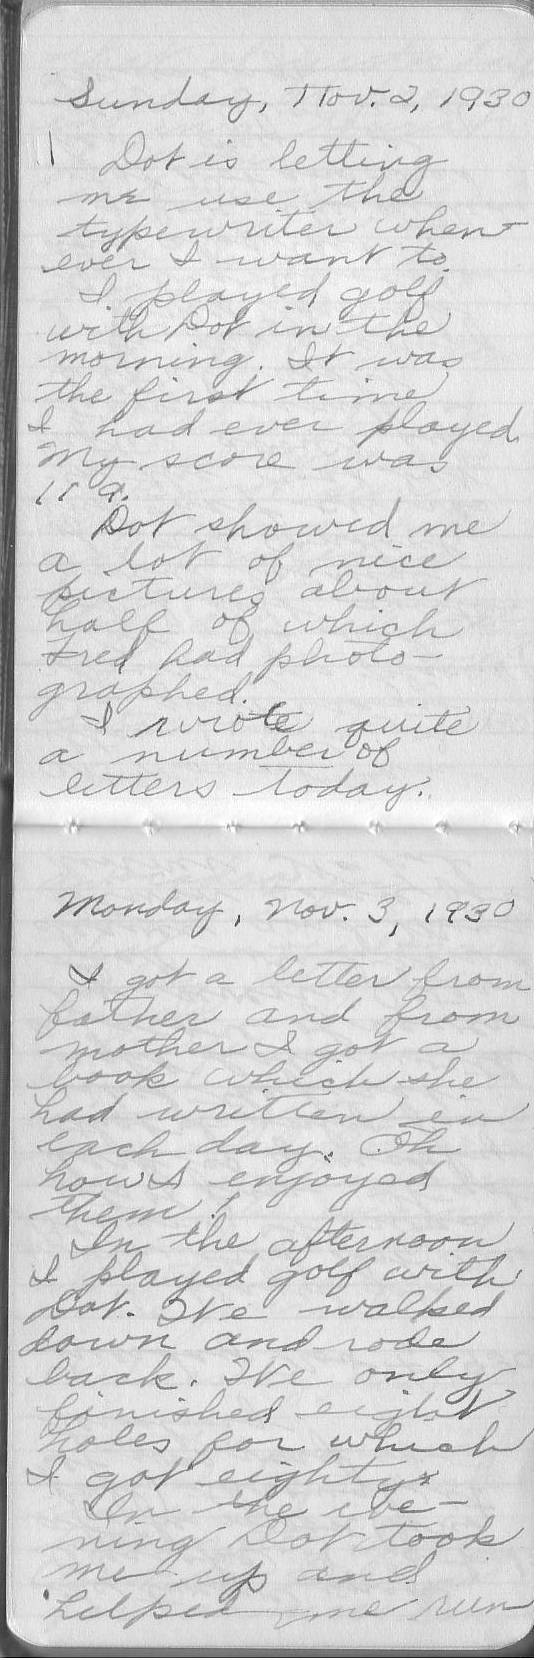 Sunday, Nov. 2, 1930
Dot is letting
me use the
typewriter when-
ever I want to.
I played golf
with Dot in the
morning. It was
the first time
I had ever played.
My score was
119.
Dot showed me
a lot of nice
pictures about
half of which
Fred had photo-
graphed.
I wrote quite
a number of
letters today.
Monday, Nov. 3, 1930
I got a letter from
father and from
mother I got a
book which she
had written in
each day. Oh
how I enjoyed
them!
In the afternoon
I played golf with
Dot. We walked
down and rode
back. We only
finished eight
holes for which
I got eighty.
In the eve-
ning Dot took
me up and
helped me run